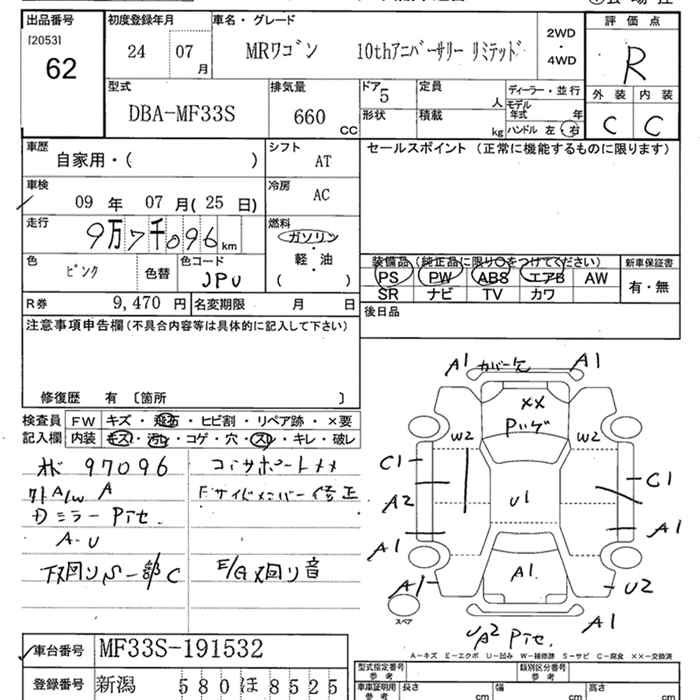 出品番号 初度登録年月 車名・グレード 評価点
[2053] 62 24 07月 MRワゴン 10thアニバーサリー リミテッド 2WD・4WD R
型式 排気量 ドア 定員 ディーラー・並行 外装 内装
DBA-MF33S 660 CC 5 人 モデル年式 年
形状 積載 kg ハンドル 左・右 C C
車歴 シフト セールスポイント (正常に機能するものに限ります)
自家用・( ) AT
車検 冷房
09年 07月(25日) AC
走行 燃料
9万7千096km ガソリン・軽・油
( )
色 色コード 装備品(純正品に限り○をつけてください) 新車保証書
ピンク 色替 JPU PS PW ABS エアB AW 有・無
SR ナビ TV カワ
R券 9,470円 名変期限 月 日 後日品
注意事項申告欄(不具合内容等は具体的に記入して下さい)
修復歴 有 〔箇所 〕
検査員 FW キズ・飛石・ヒビ割・リペア跡・×要
記入欄 内装 キズ・汚れ・コゲ・穴・スレ・キレ・破レ
97096 コアサポートメメ
外A/w A Fサイドメンバー修正
Dミラー Pイセ
A-U
下廻りS一部C E/G又回り音
A1 カバーケ A1
××
Pハゲ
W2 W2
C1 C1
A2 U1
A1 A1
A1
A1 U2
スペア
UA2 Pイセ. A1
A-キズ E-エクボ U-凹み W-補修跡 S-サビ C-腐食 ××-交換済
車台番号 MF33S-191532
型式指定番号 参考 類別区分番号 参考
登録番号 新潟 580 ほ 8525
車庫証明用 参考 長さ cm 幅 cm 高さ cm